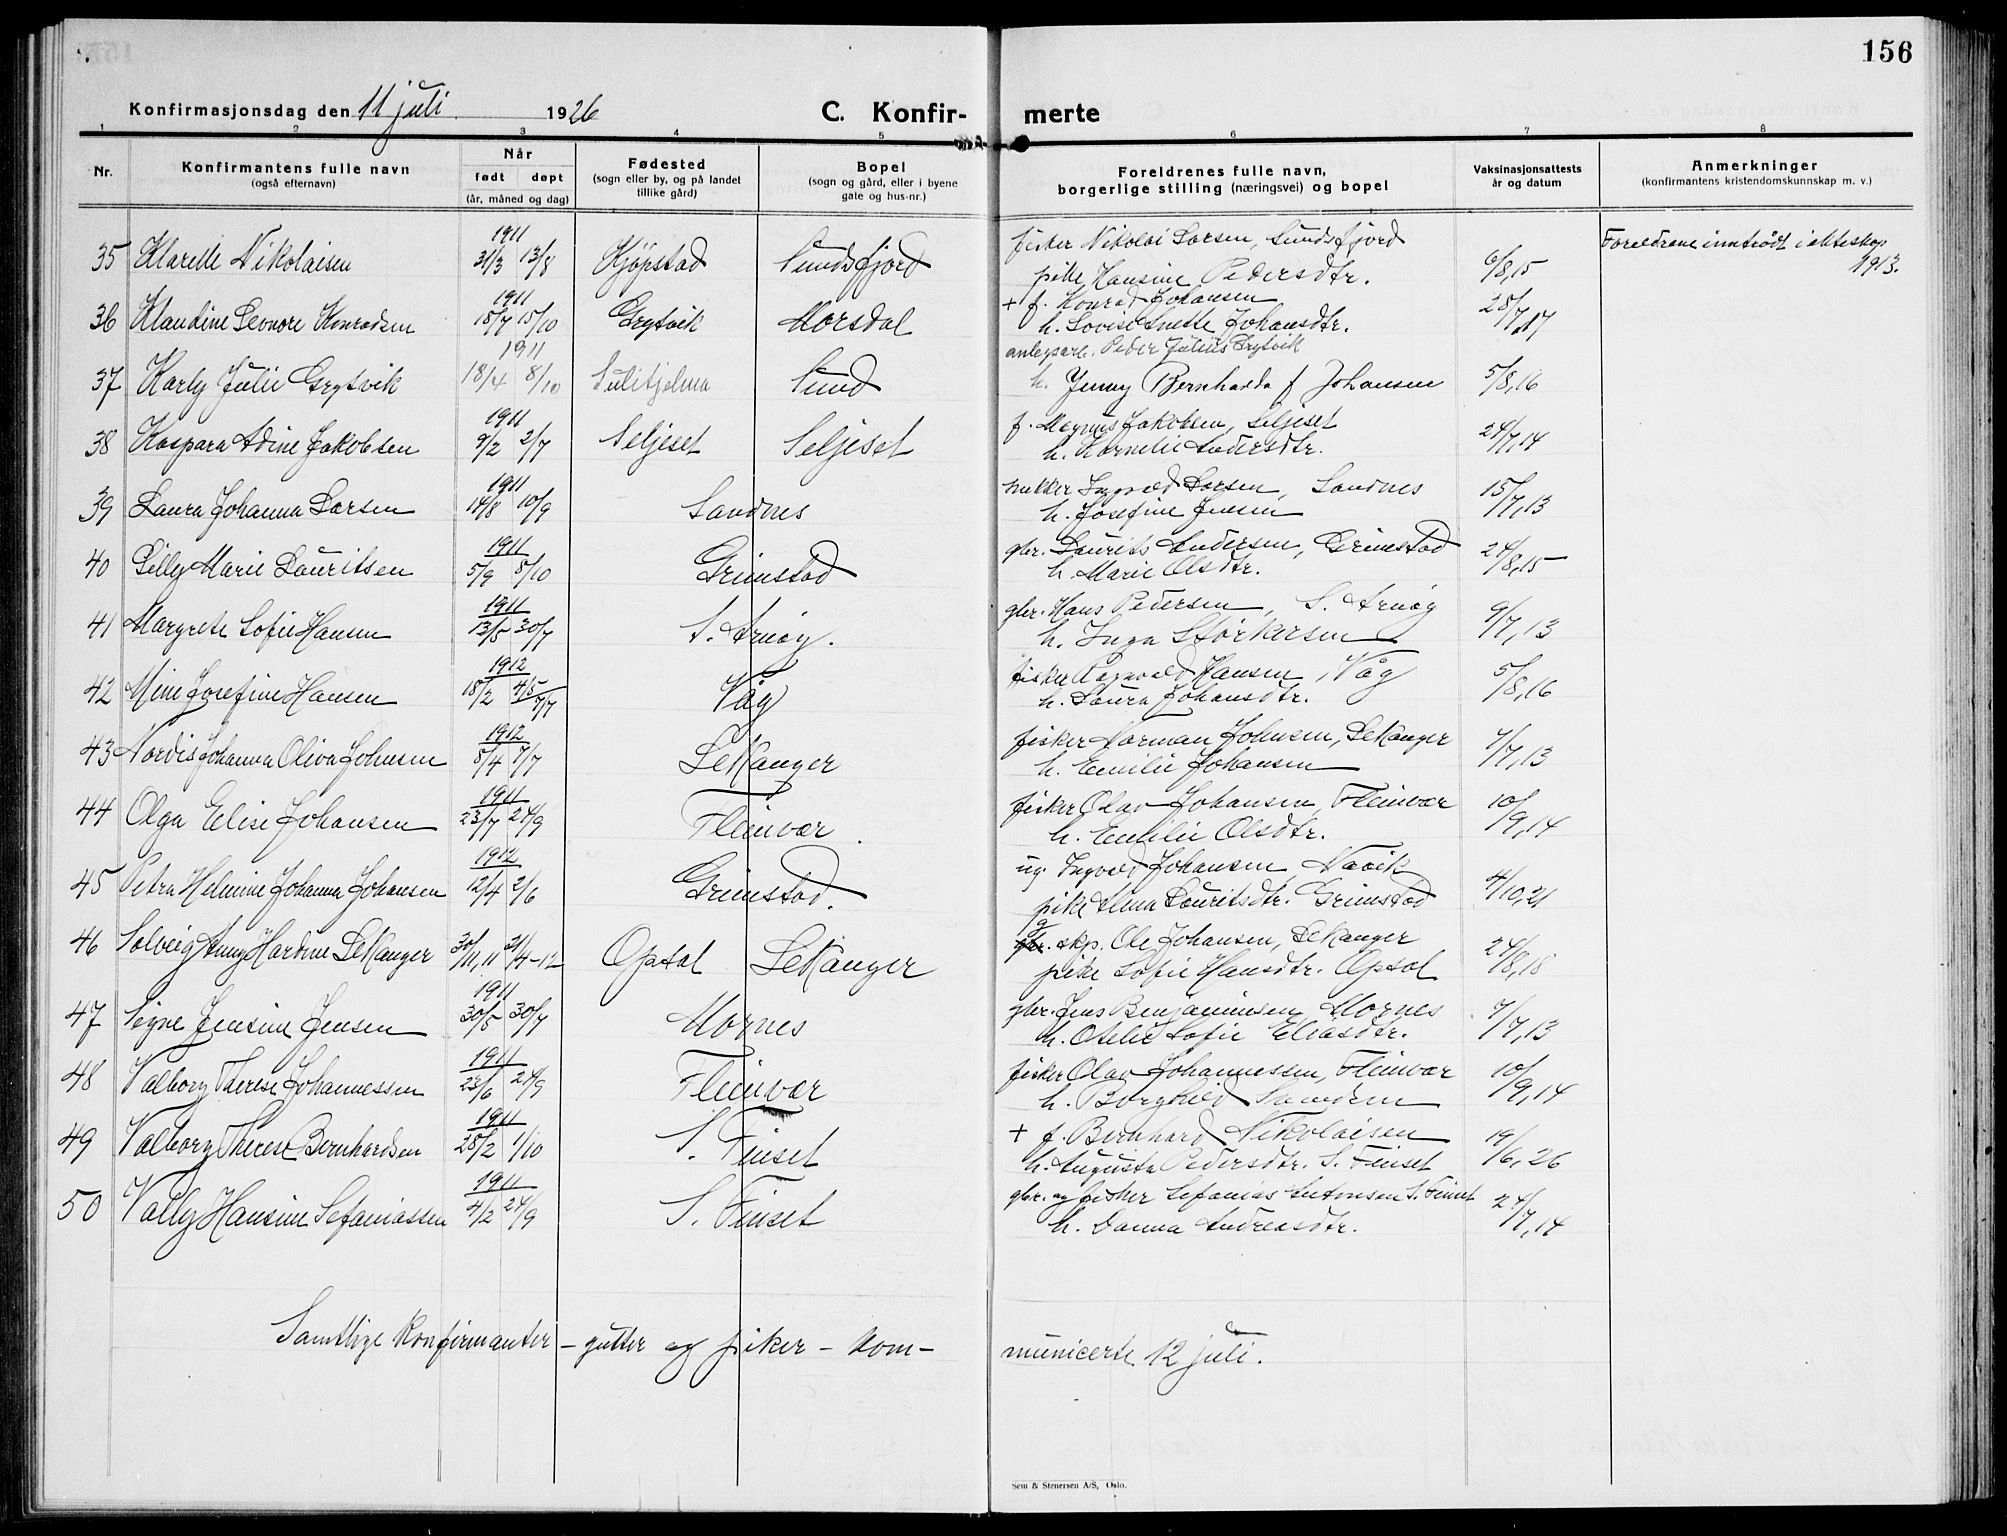 156
Konfirmasjonsdag den 11 juli 1926 C. Konfir- merte
1 2 3 4 5 6 7 8
Nr. Konfirmantens fulle navn (også efternavn) Når født døpt (år, måned og dag) Fødested (sogn eller by, og på landet tillike gård) Bopel (sogn og gård, eller i byene gate og hus-nr.) Foreldrenes fulle navn, borgerlige stilling (næringsvei) og bopel Vaksinasjonsattests år og datum Anmerkninger (konfirmantens kristendomskunnskap m. v.)
1911 fisker Nikolai Larsen, Sundsfjord Foreldrene inntrådt i ekteskap
35 Klarelle Nikolaisen 31/3 13/8 Kjøpstad Sundsfjord pike Hansine Pedersdtr. 6/8,15 1913.
1911 + f. Konrad Johansen
36 Klaudine Leonore Konradsen 18/7 15/10 Grytvik Morsdal h. Lovise Anette Johansdtr. 28/7,17
1911 anlegsarb. Peder Julius Grytvik
37 Karly Julie Grytvik 18/4 8/10 Sulitjelma Sund h. Jenny Bernharda f Johansen 5/8,16
1911 f. Magnus Jakobsen, Seljeset
38 Kaspara Adine Jakobsen 9/2 2/7 Seljeset Seljeset h. Kornelie Andersdtr. 24/7,14
1911 snekker Ingvald Larsen, Sandnes
39 Laura Johanna Larsen 14/8 10/9 Sandnes h. Josefine Jensen 15/7,13
1911 gbr. Laurits Andersen, Grimstad
40 Lilly Marie Lauritsen 5/9 8/10 Grimstad h. Marie Olsdtr. 24/8,15
1911 gbr. Hans Pedersen, S. Arnøy
41 Margrete Sofie Hansen 13/5 30/7 S. Arnøy. h. Inga Størkersen 9/7,13
1912 fisker Ragnvald Hansen, Våg
42 Mine Josefine Hansen 18/2 4/5 7/7 Våg h. Laura Johansdtr. 5/8,16
1912 fisker Norman Johnsen, Lekanger
43 Nordis Johanna Oliva Johnsen 5/4 7/7 Lekanger h. Emilie Johansen 7/7,13
1911 fisker Olav Johansen, Fleinvær
44 Olga Elise Johansen 23/7 24/9 Fleinvær. h. Emilie Olsdtr. 10/9,14
1912 ug. Ingvald Johansen, Navik
45 Petra Helmine Johanna Johansen 12/4 2/6 Grimstad. pike Alma Lauritsdtr. Grimstad 4/10,21
skp. Ole Johansen, Lekanger
46 Solveig Anny Hardine Lekanger 30/11,11 21/4-12 Opsal Lekanger pike Sofie Hansdtr. Opsal 24/8,18
1911 gbr. Jens Benjaminsen, Mornes
47 Signe Jensine Jensen 30/5 30/7 Mornes h. Otelie Sofie Eliasdtr. 7/7,13
1911 fisker Olav Johannessen, Fleinvær
48 Valborg Therese Johannessen 23/6 24/9 Fleinvær h. Borghild 10/9,14
1911 + f. Bernhard Nikolaisen
49 Valborg Therese Bernhardsen 28/2 1/10 S. Finset h. Augusta Pedersdtr. S. Finset 19/6,26
1911 gbr. og fisker Sefanias Antonsen S. Finset
50 Vally Hansine Sefaniassen 4/2 24/9 S. Finset h. Danna Andreasdtr. 24/7,14
Samtlige konfirmanter - gutter og piker - kom- municerte 12 juli.
Sem & Stenersen A/S, Oslo.